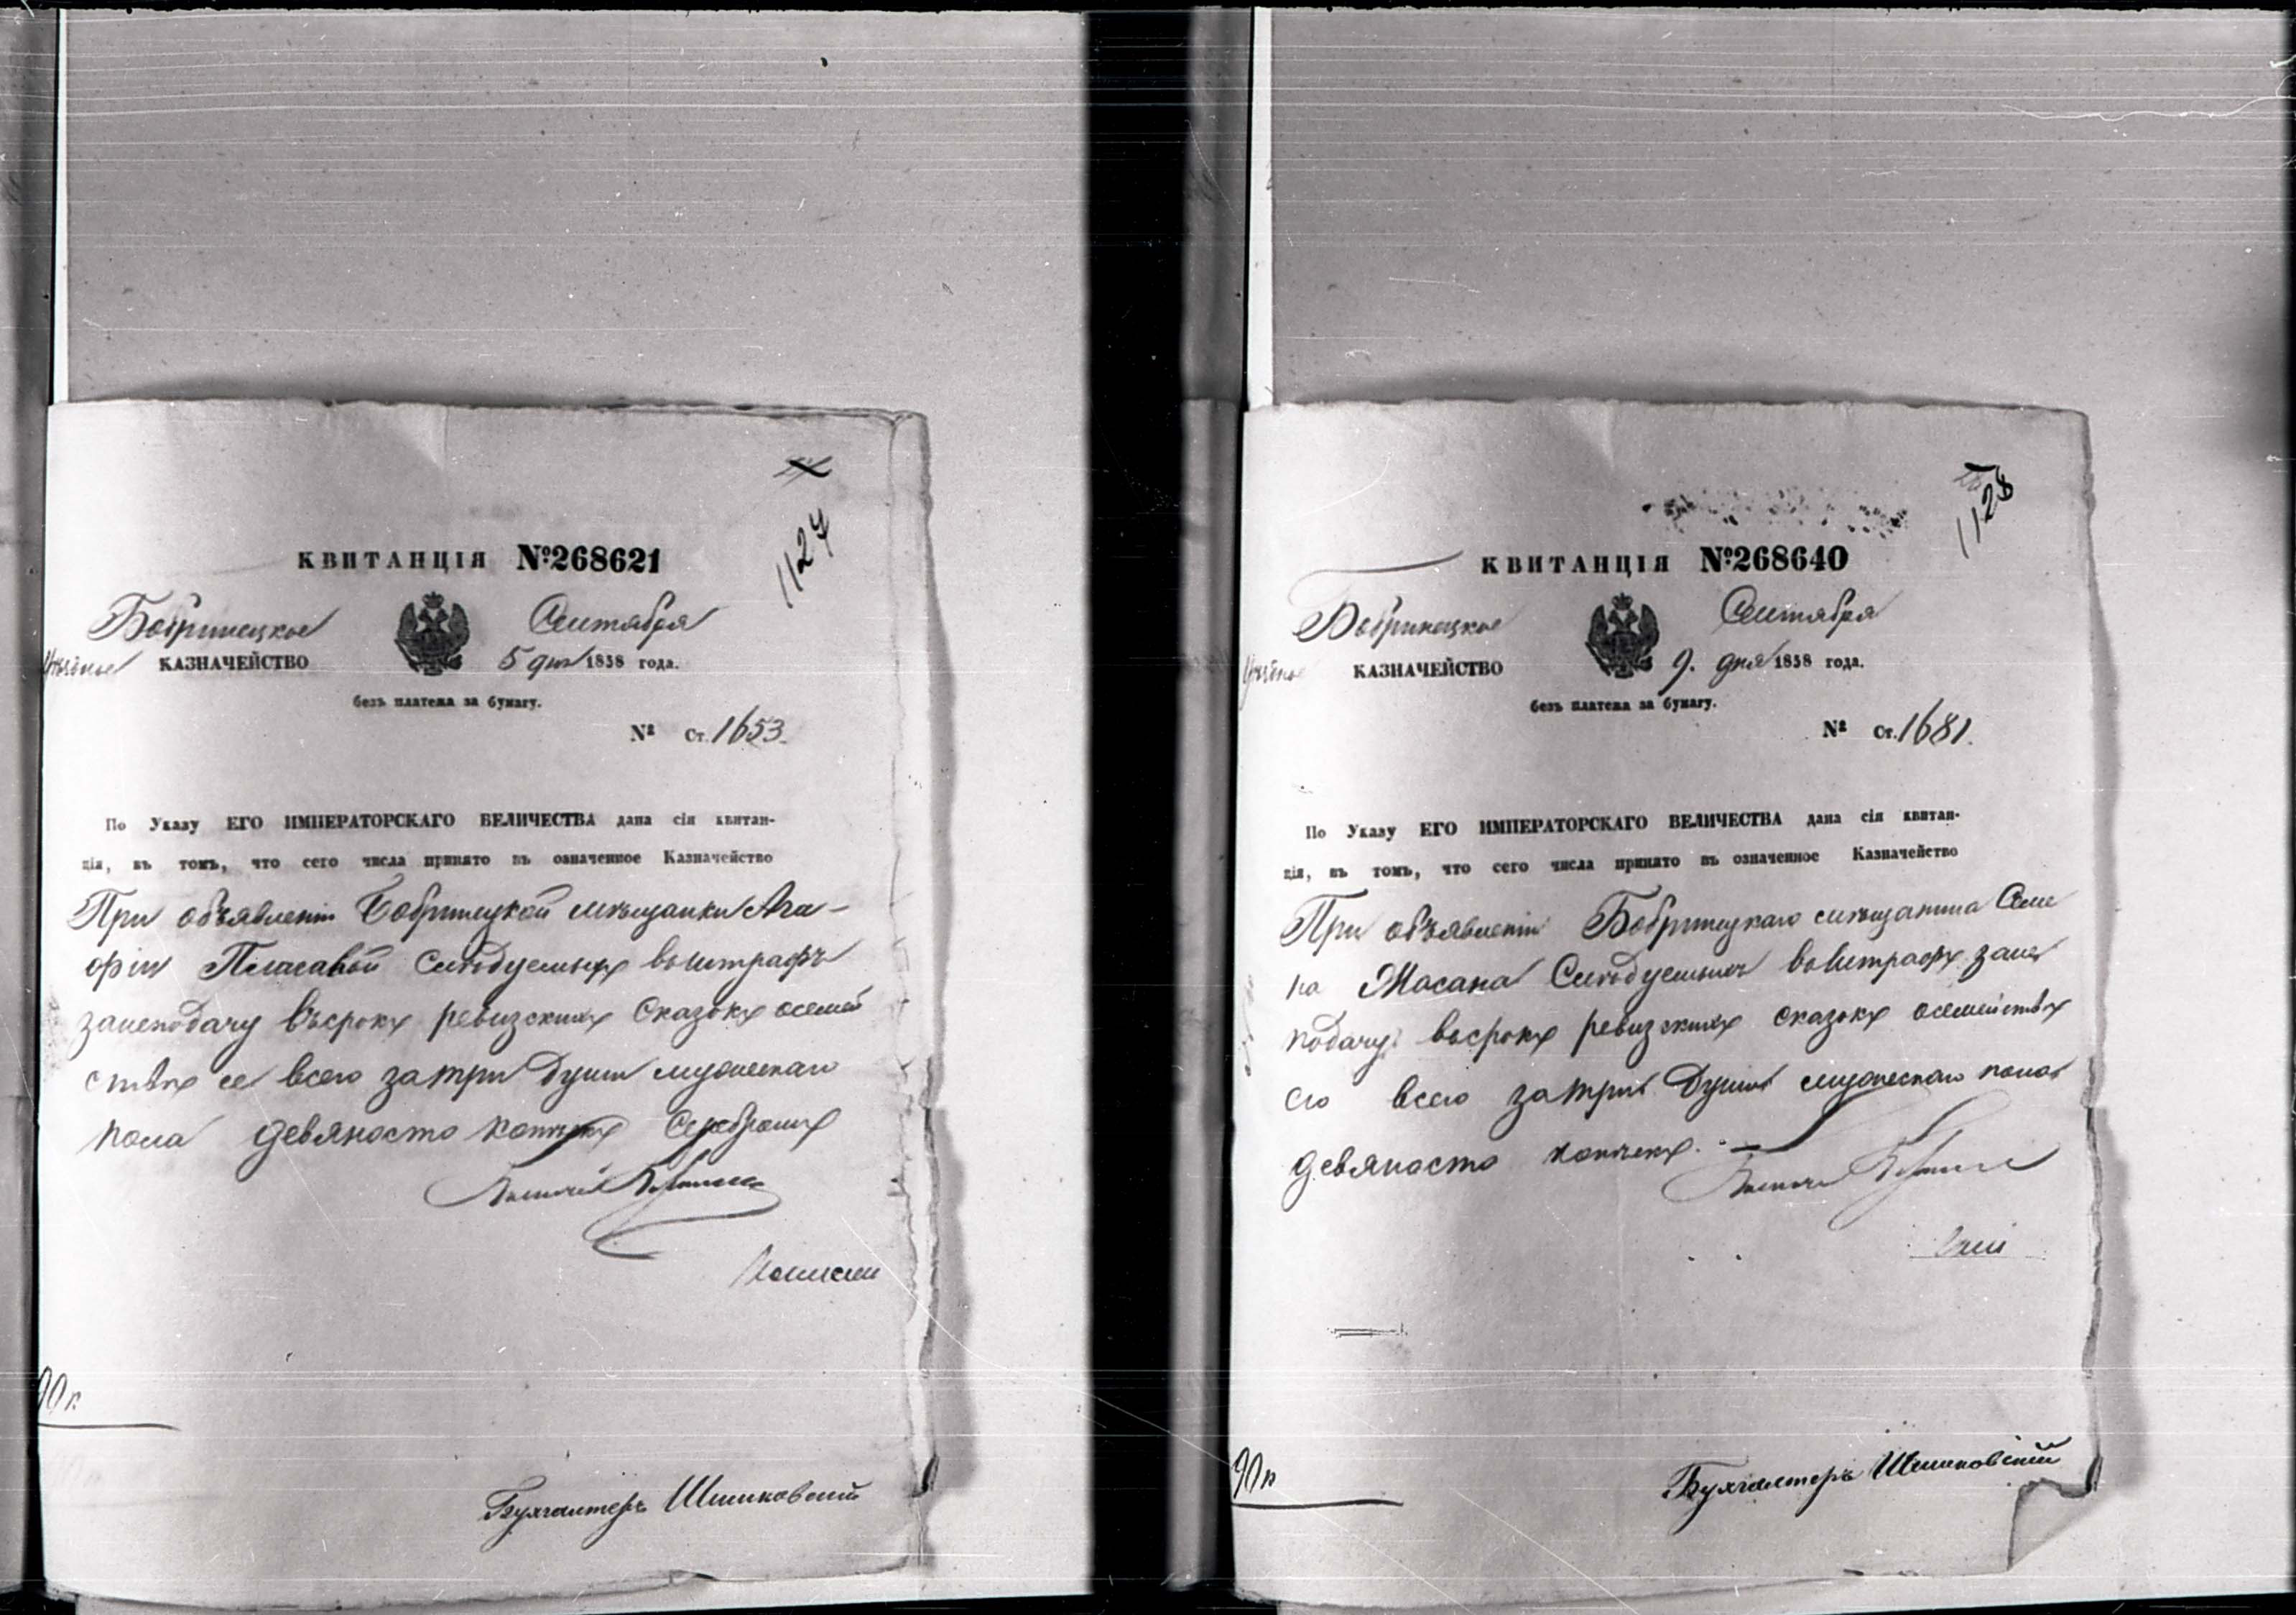 1127
КВИТАНЦІЯ №268621
Бобринецкое Сентября
Уѣздное КАЗНАЧЕЙСТВО 5 дня 1858 года.
безъ платежа за бумагу.
№ Ст. 1653.
По Указу ЕГО ИМПЕРАТОРСКАГО ВЕЛИЧЕСТВА дана сія квитан-
ція, въ томъ, что сего числа принято въ означенное Казначейство
При объявленіи Бобринецкой мѣщанки Ага-
фіи слѣдуемыхъ во штрафъ
за неподачу въ срокъ ревизскихъ сказокъ о семей
ствѣ ее всего за три души мужескаго
пола девяносто копѣекъ Серебромъ
90 к
Бухгалтеръ Шишковскій
1128
КВИТАНЦІЯ №268640
Бобринецкое Сентября
Уѣздное КАЗНАЧЕЙСТВО 9. дня 1858 года.
безъ платежа за бумагу.
№ Ст. 1681.
По Указу ЕГО ИМПЕРАТОРСКАГО ВЕЛИЧЕСТВА дана сія квитан-
ція, въ томъ, что сего числа принято въ означенное Казначейство
При объявленіи Бобринецкаго мѣщанина Семе
на Масана Слѣдуемыхъ во штрафъ за не
подачу въ срокъ ревизскихъ сказокъ о семействѣ
его всего за три души мужескаго пола
девяносто копѣекъ.
90 к
Бухгалтеръ Шишковскій